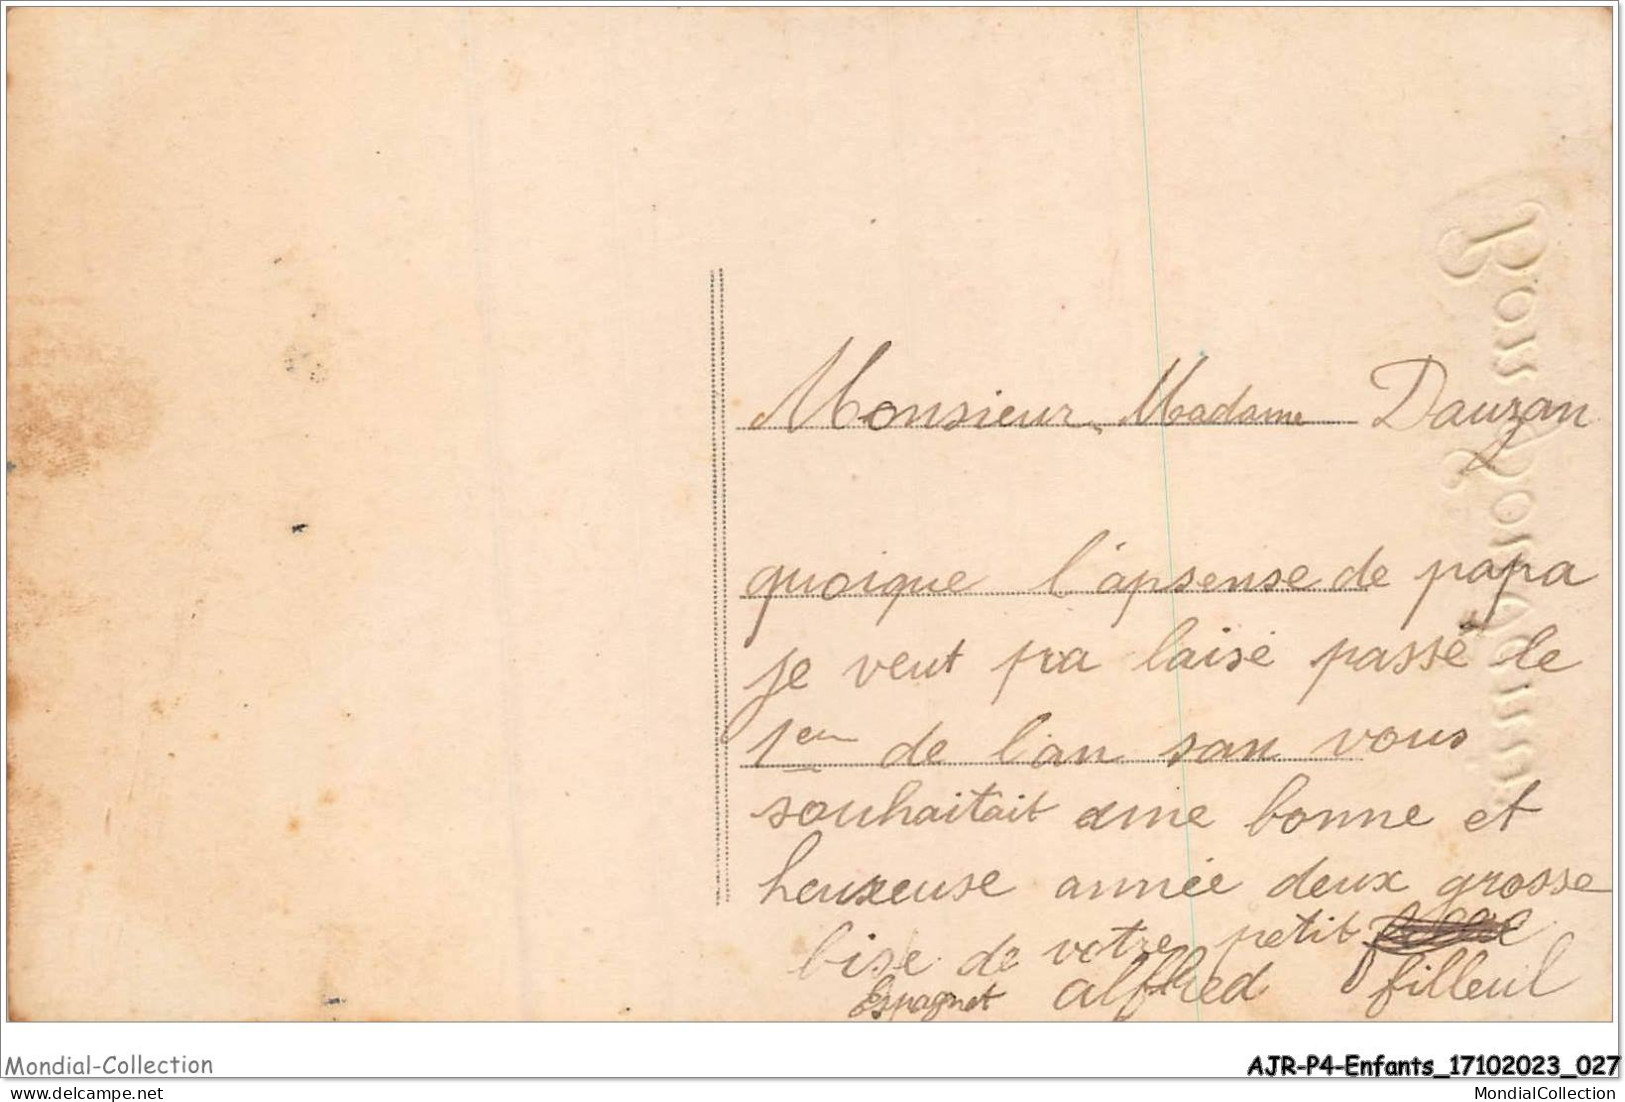 Monsieur Madame Dauzan
quoique l'apsense de papa
je veut pra laisé passé le
1er de l'an san vous
souhaitait une bonne et
heureuse année deux grosse
bise de votre petit
Espagnet alfred filleul
Bons Souvenirs
Mondial-Collection
AJR-P4-Enfants_17102023_027
mondial-collection
MondialCollection